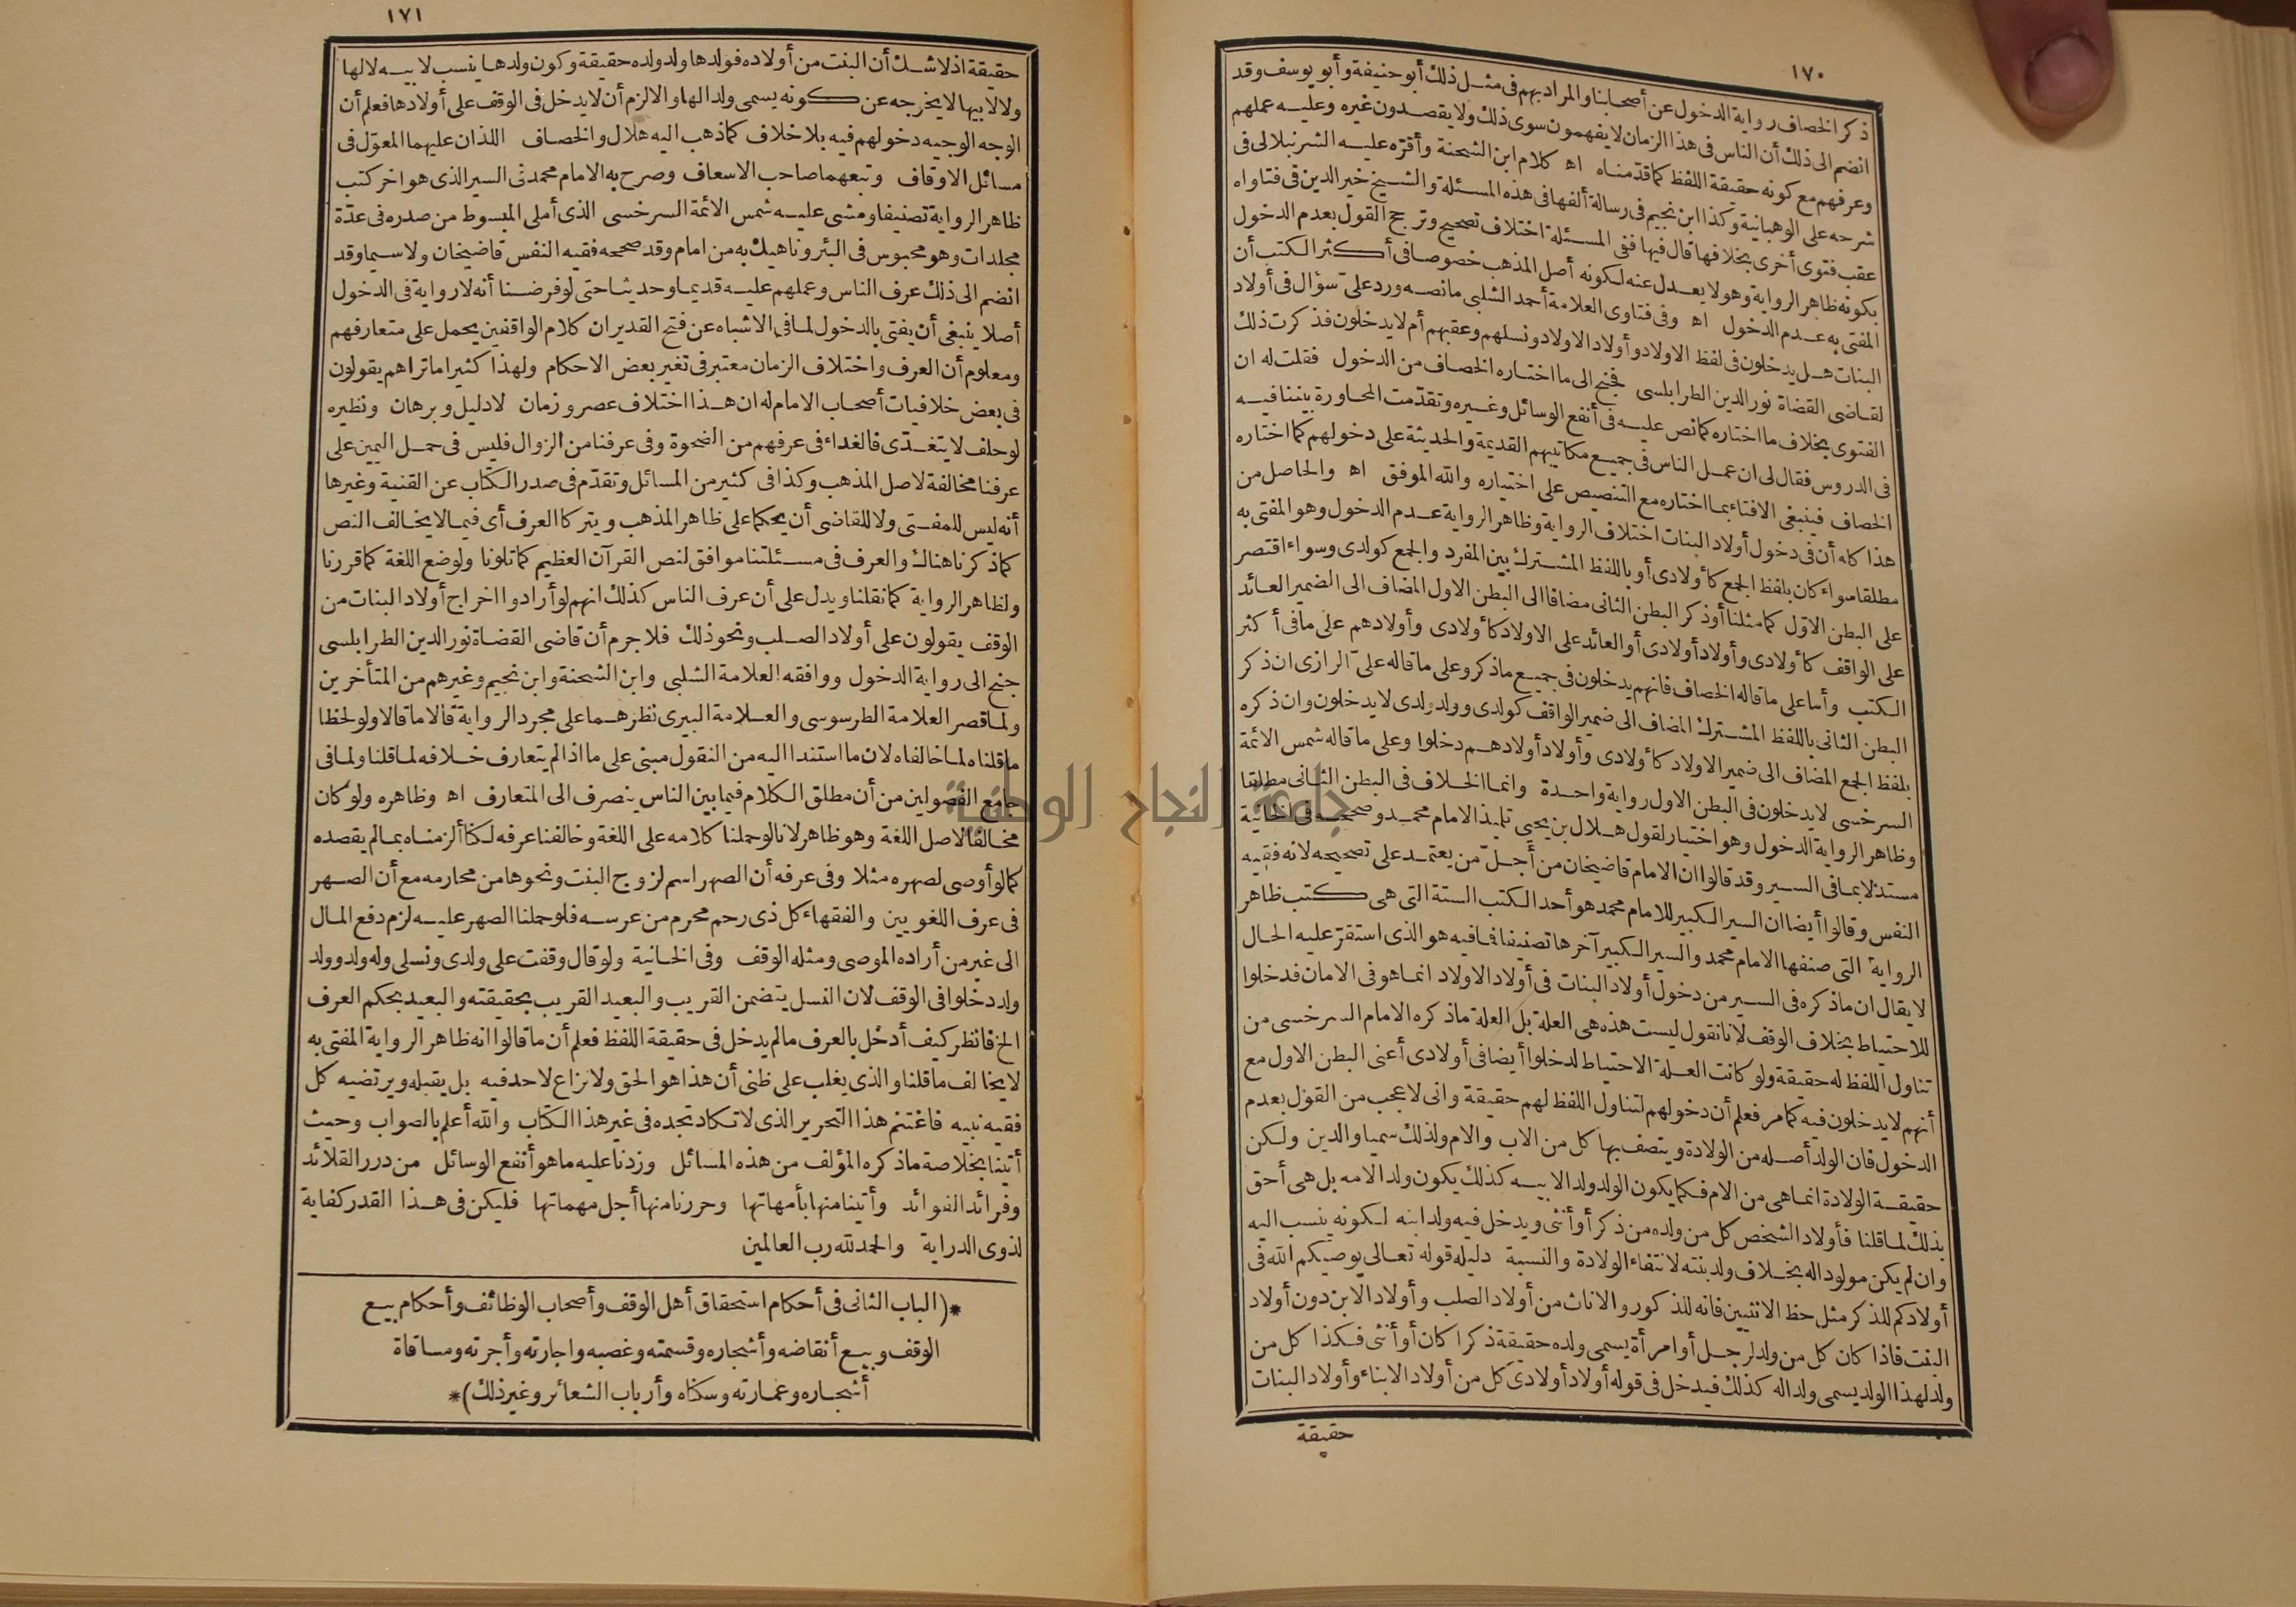 ١٧٠
ذكر الخصاف رواية الدخول عن أصحابنا والمراد بهم فى مثل ذلك أبو حنيفة وأبو يوسف وقد
انضم الى ذلك أن الناس فى هذا الزمان لا يفهمون سوى ذلك ولا يقصدون غيره وعليه عملهم
وعرفهم مع كونه حقيقة اللفظ كما قدمناه اه كلام ابن الشحنة وأقره عليه الشرنبلالى فى
شرحه على الوهبانية وكذا ابن نجيم فى رسالة ألفها فى هذه المسئلة والشيخ خير الدين فى فتاواه
عقب فتوى أخرى بخلافها قال فيها ففى المسئلة اختلاف تصحيح وترجح القول بعدم الدخول
بكونه ظاهر الرواية وهو لا يعدل عنه لكونه أصل المذهب خصوصا فى أكثر الكتب أن
المفتى به عدم الدخول اه وفى فتاوى العلامة أحمد الشلبى مانصه ورد علىّ سؤال فى أولاد
البنات هل يدخلون فى لفظ الاولاد وأولاد الاولاد ونسلهم وعقبهم أم لا يدخلون فذكرت ذلك
لقاضى القضاة نور الدين الطرابلسى فجنح الى ما اختاره الخصاف من الدخول فقلت له ان
الفتوى بخلاف ما اختاره كما نص عليه فى أنفع الوسائل وغيره وتقدمت المحاورة بيننا فيه
فى الدروس فقال لى ان عمل الناس فى جميع مكاتيبهم القديمة والحديثة على دخولهم كما اختاره
الخصاف فينبغى الافتاء بما اختاره مع التنصيص على اختياره والله الموفق اه والحاصل من
هذا كله أن فى دخول أولاد البنات اختلاف الرواية وظاهر الرواية عدم الدخول وهو المفتى به
مطلقا سواء كان بلفظ الجمع كأولادى أو باللفظ المشترك بين المفرد والجمع كولدى وسواء اقتصر
على البطن الاول كما مثلنا أو ذكر البطن الثانى مضافا الى البطن الاول المضاف الى الضمير العائد
على الواقف كأولادى وأولاد أولادى أو العائد على الاولاد كأولادى وأولادهم على ما فى أكثر
الكتب وأما على ما قاله الخصاف فانهم يدخلون فى جميع ما ذكر وعلى ما قاله علىّ الرازى ان ذكر
البطن الثانى باللفظ المشترك المضاف الى ضمير الواقف كولدى وولد ولدى لا يدخلون وان ذكره
بلفظ الجمع المضاف الى ضمير الاولاد كأولادى وأولاد أولادهم دخلوا وعلى ما قاله شمس الائمة
السرخسى لا يدخلون فى البطن الاول رواية واحدة وانما الخلاف فى البطن الثانى مطلقا
وظاهر الرواية الدخول وهو اختيار لقول هلال بن يحيى تلميذ الامام محمد وصححه فى الخانية
مستدلا بما فى السير وقد قالوا ان الامام قاضيخان من أجلّ من يعتمد على تصحيحه لانه فقيه
النفس وقالوا أيضا ان السير الكبير للامام محمد هو أحد الكتب الستة التى هى كتب ظاهر
الرواية التى صنفها الامام محمد والسير الكبير آخرها تصنيفا فما فيه هو الذى استقر عليه الحال
لا يقال ان ما ذكره فى السير من دخول أولاد البنات فى أولاد الاولاد انما هو فى الامان فدخلوا
للاحتياط بخلاف الوقف لانا نقول ليست هذه هى العلة بل العلة ما ذكره الامام السرخسى من
تناول اللفظ له حقيقة ولو كانت العلة الاحتياط لدخلوا أيضا فى أولادى أعنى البطن الاول مع
أنهم لا يدخلون فيه كما مر فعلم أن دخولهم لتناول اللفظ لهم حقيقة وانى لا عجب من القول بعدم
الدخول فان الولد أصله من الولادة ويتصف بها كل من الاب والام ولذلك سميا والدين ولكن
حقيقة الولادة انما هى من الام فكما يكون الولد ولد الابيه كذلك يكون ولد الامه بل هى أحق
بذلك لما قلنا فأولاد الشخص كل من ولده من ذكر أو أنثى ويدخل فيه ولد ابنه لكونه ينسب اليه
وان لم يكن مولودا له بخلاف ولد بنته لانتفاء الولادة والنسبة دليله قوله تعالى يوصيكم الله فى
أولادكم للذكر مثل حظ الانثيين فانه للذكور والاناث من أولاد الصلب وأولاد الابن دون أولاد
البنت فاذا كان كل من ولد لرجل أو امرأة يسمى ولده حقيقة ذكرا كان أو أنثى فكذا كل من
ولد لهذا الولد يسمى ولدا له كذلك فيدخل فى قوله أولاد أولادى كل من أولاد الابناء وأولاد البنات
حقيقة
١٧١
حقيقة اذ لا شك أن البنت من أولاده فولدها ولد ولده حقيقة وكون ولدها ينسب لابيه لا لها
ولا لابيها لا يخرجه عن كونه يسمى ولدا لها والا لزم أن لا يدخل فى الوقف على أولادها فعلم أن
الوجه الوجيه دخولهم فيه بلا خلاف كما ذهب اليه هلال والخصاف اللذان عليهما المعوّل فى
مسائل الاوقاف وتبعهما صاحب الاسعاف وصرح به الامام محمد فى السير الذى هو اخر كتب
ظاهر الرواية تصنيفا ومشى عليه شمس الائمة السرخسى الذى أملى المبسوط من صدره فى عدّة
مجلدات وهو محبوس فى البئر وناهيك به من امام وقد صححه فقيه النفس قاضيخان ولا سيما وقد
انضم الى ذلك عرف الناس وعملهم عليه قديما وحديثا حتى لو فرضنا أنه لا رواية فى الدخول
أصلا ينبغى أن يفتى بالدخول لما فى الاشباه عن فتح القدير ان كلام الواقفين يحمل على متعارفهم
ومعلوم أن العرف واختلاف الزمان معتبر فى تغير بعض الاحكام ولهذا كثيرا ما تراهم يقولون
فى بعض خلافيات أصحاب الامام له ان هذا اختلاف عصر وزمان لا دليل وبرهان ونظيره
لو حلف لا يتغدّى فالغداء فى عرفهم من الضحوة وفى عرفنا من الزوال فليس فى حمل اليمين على
عرفنا مخالفة لاصل المذهب وكذا فى كثير من المسائل وتقدّم فى صدر الكتاب عن القنية وغيرها
أنه ليس للمفتى ولا للقاضى أن يحكما على ظاهر المذهب ويتركا العرف أى فيما لا يخالف النص
كما ذكرنا هناك والعرف فى مسئلتنا موافق لنص القرآن العظيم كما تلونا ولوضع اللغة كما قررنا
ولظاهر الرواية كما نقلنا ويدل على أن عرف الناس كذلك انهم لو أرادوا اخراج أولاد البنات من
الوقف يقولون على أولاد الصلب ونحو ذلك فلا جرم أن قاضى القضاة نور الدين الطرابلسى
جنح الى رواية الدخول ووافقه العلامة الشلبى وابن الشحنة وابن نجيم وغيرهم من المتأخرين
ولما قصر العلامة الطرسوسى والعلامة البيرى نظرهما على مجرد الرواية قالا ما قالا ولو لحظا
ما قلناه لما خالفاه لان ما استندا اليه من النقول مبنى على ما اذا لم يتعارف خلافه لما قلنا ولما فى
جامع الفصولين من أن مطلق الكلام فيما بين الناس ينصرف الى المتعارف اه وظاهره ولو كان
مخالفا لاصل اللغة وهو ظاهر لانا لو حملنا كلامه على اللغة وخالفنا عرفه لكنا ألزمناه بما لم يقصده
كما لو أوصى لصهره مثلا وفى عرفه أن الصهر اسم لزوج البنت ونحوها من محارمه مع أن الصهر
فى عرف اللغويين والفقهاء كل ذى رحم محرم من عرسه فلو حملنا الصهر عليه لزم دفع المال
الى غير من أراده الموصى ومثله الوقف وفى الخانية ولو قال وقفت على ولدى ونسلى وله ولد وولد
ولد دخلوا فى الوقف لان النسل يتضمن القريب والبعيد القريب بحقيقته والبعيد بحكم العرف
الخ فانظر كيف أدخل بالعرف ما لم يدخل فى حقيقة اللفظ فعلم أن ما قالوا انه ظاهر الرواية المفتى به
لا يخالف ما قلنا والذى يغلب على ظنى أن هذا هو الحق ولا نزاع لاحد فيه بل يقبله ويرتضيه كل
فقيه نبيه فاغتنم هذا التحرير الذى لا تكاد تجده فى غير هذا الكتاب والله أعلم بالصواب وحيث
أتينا بخلاصة ما ذكره المؤلف من هذه المسائل وزدنا عليه ما هو أنفع الوسائل من درر القلائد
وفرائد الفوائد وأتينا منها بأمهاتها وحررنا منها أجل مهماتها فليكن فى هذا القدر كفاية
لذوى الدراية والحمد لله رب العالمين
*(الباب الثانى فى أحكام استحقاق أهل الوقف وأصحاب الوظائف وأحكام بيع
الوقف وبيع أنقاضه وأشجاره وقسمته وغصبه واجارته وأجرته ومساقاة
أشجاره وعمارته وسكناه وأرباب الشعائر وغير ذلك)*
جامعة النجاح الوطنية